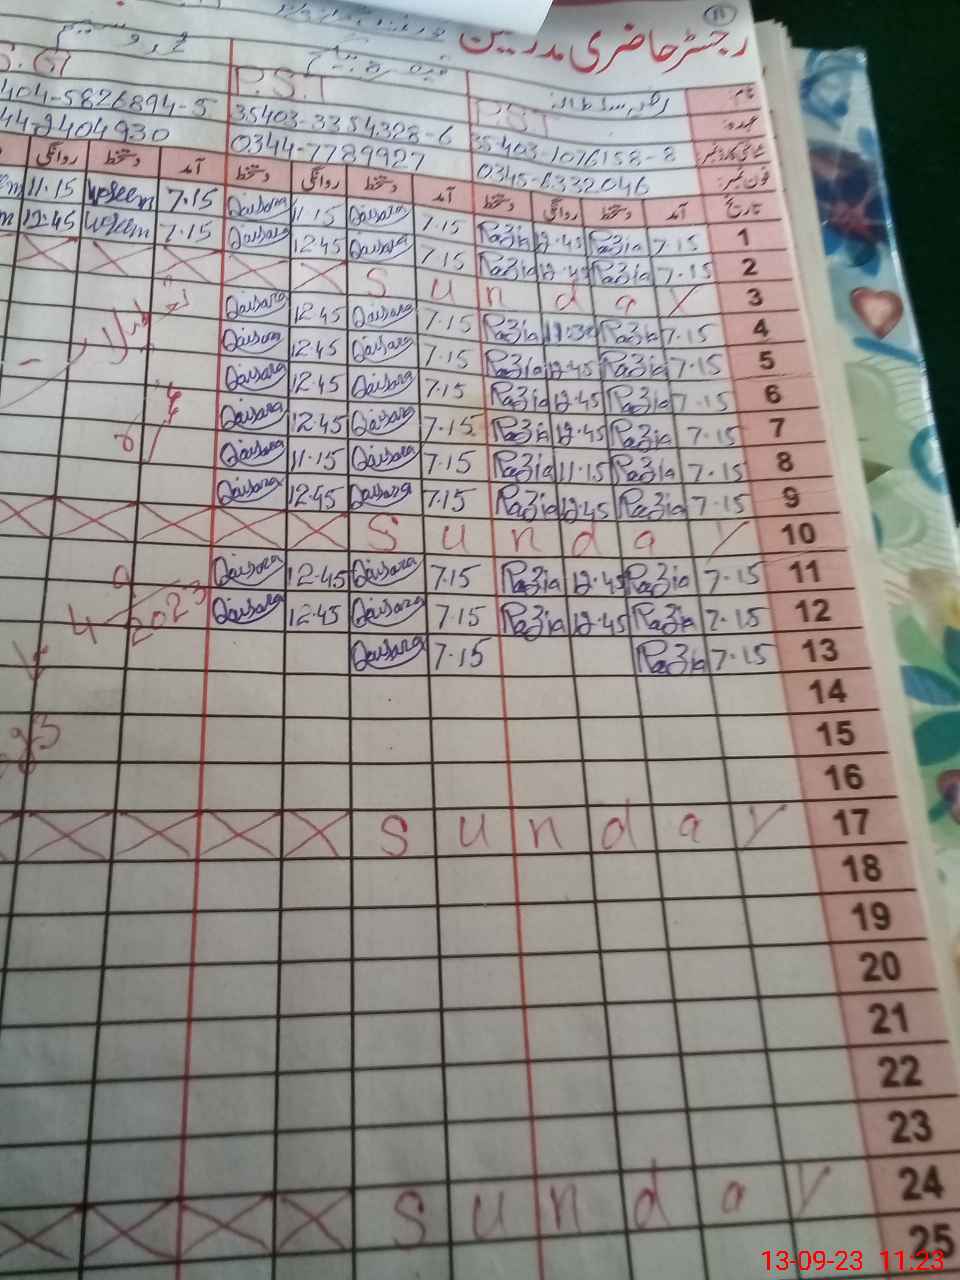 رجسٹر حاضری مدرسین
11
نام:
عہدہ: PST P.S.T
شناختی کارڈ نمبر: 35403-1076158-8 35403-3354328-6 404-5826894-5
فون نمبر: 0345-6332046 0344-7789927 44-2404930
تاریخ آمد دستخط روانگی دستخط آمد دستخط روانگی دستخط آمد دستخط روانگی
1 7.15 Razia 12.45 Razia 7.15 Qaisara 11.15 Qaisara 7.15 Waseem 11.15
2 7.15 Razia 12.45 Razia 7.15 Qaisara 12.45 Qaisara 7.15 Waseem 12.45
3 Sunday
4 7.15 Razia 11:30 Razia 7.15 Qaisara 12.45 Qaisara
5 7.15 Razia 12.45 Razia 7.15 Qaisara 12.45 Qaisara
6 7.15 Razia 12.45 Razia 7.15 Qaisara 12.45 Qaisara
7 7.15 Razia 12.45 Razia 7.15 Qaisara 12.45 Qaisara
8 7.15 Razia 11.15 Razia 7.15 Qaisara 11.15 Qaisara
9 7.15 Razia 12.45 Razia 7.15 Qaisara 12.45 Qaisara
10 Sunday
11 7.15 Razia 12.45 Razia 7.15 Qaisara 12.45 Qaisara
12 7.15 Razia 12.45 Razia 7.15 Qaisara 12.45 Qaisara
13 7.15 Razia 7.15 Qaisara
14
15
16
17 Sunday
18
19
20
21
22
23
24 Sunday
25
4-9-2023
13-09-23 11:23